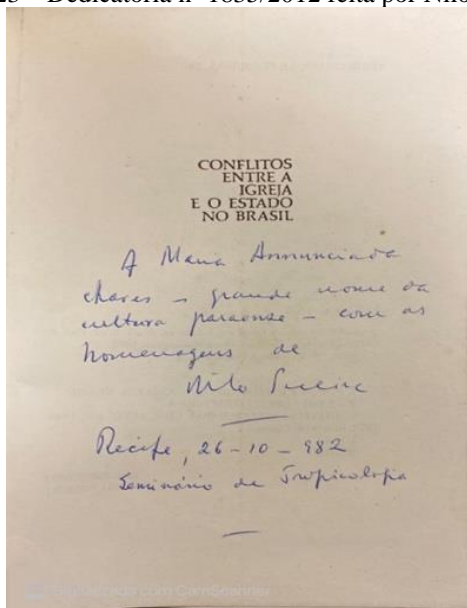 Dedicatória nº 1835/2012 feita por Nilo
CONFLITOS
ENTRE A
IGREJA
E O ESTADO
NO BRASIL
A Maria Annunciada
Chaves – grande nome da
cultura paraense – com as
homenagens de
Nilo Pereira
Recife, 26-10-982
Seminário de Tropicologia
Digitalizada com CamScanner